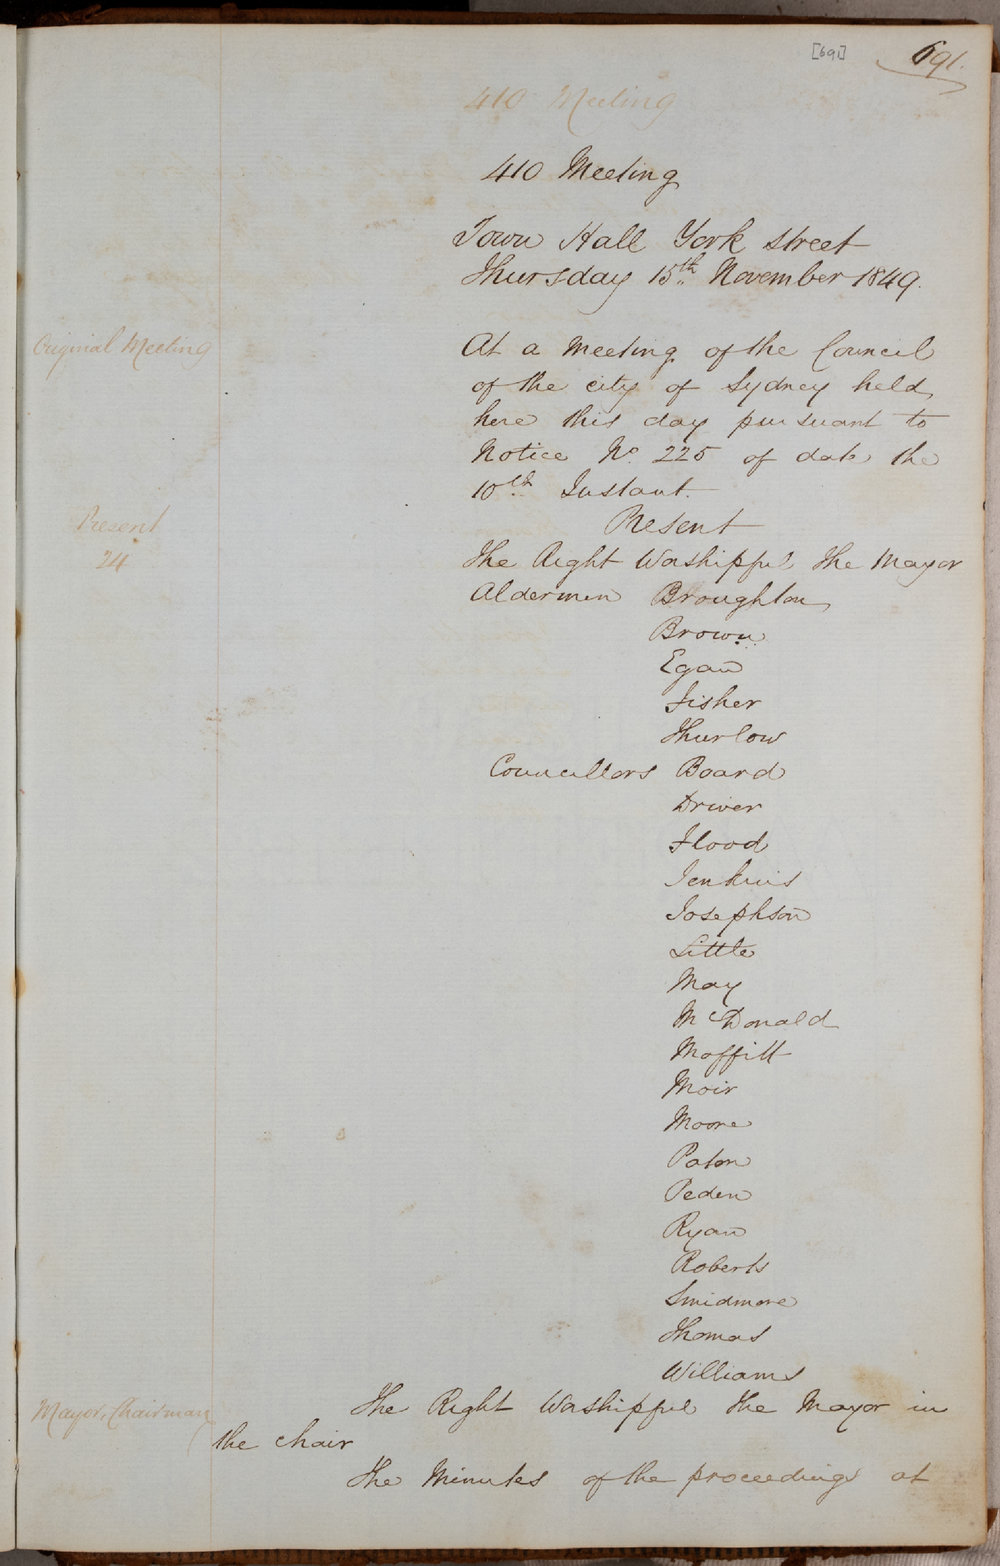 [691]
691.
410 Meeting
410 Meeting
Town Hall York street
Thursday 15th November 1849.
Original Meeting
At a Meeting of the Council
of the city of Sydney held
here this day pursuant to
Notice No. 225 of date the
10th Instant.
Present
24
Present
The Right Worshipful The Mayor
Aldermen Broughton
Brown
Egan
Fisher
Thurlow
Councillors Board
Driver
Flood
Jenkins
Josephson
Little
May
McDonald
Moffitt
Moir
Moore
Paton
Peden
Ryan
Roberts
Smidmore
Thomas
Williams
Mayor, Chairman
The Right Worshipful The Mayor in
the chair
The Minutes of the proceedings at